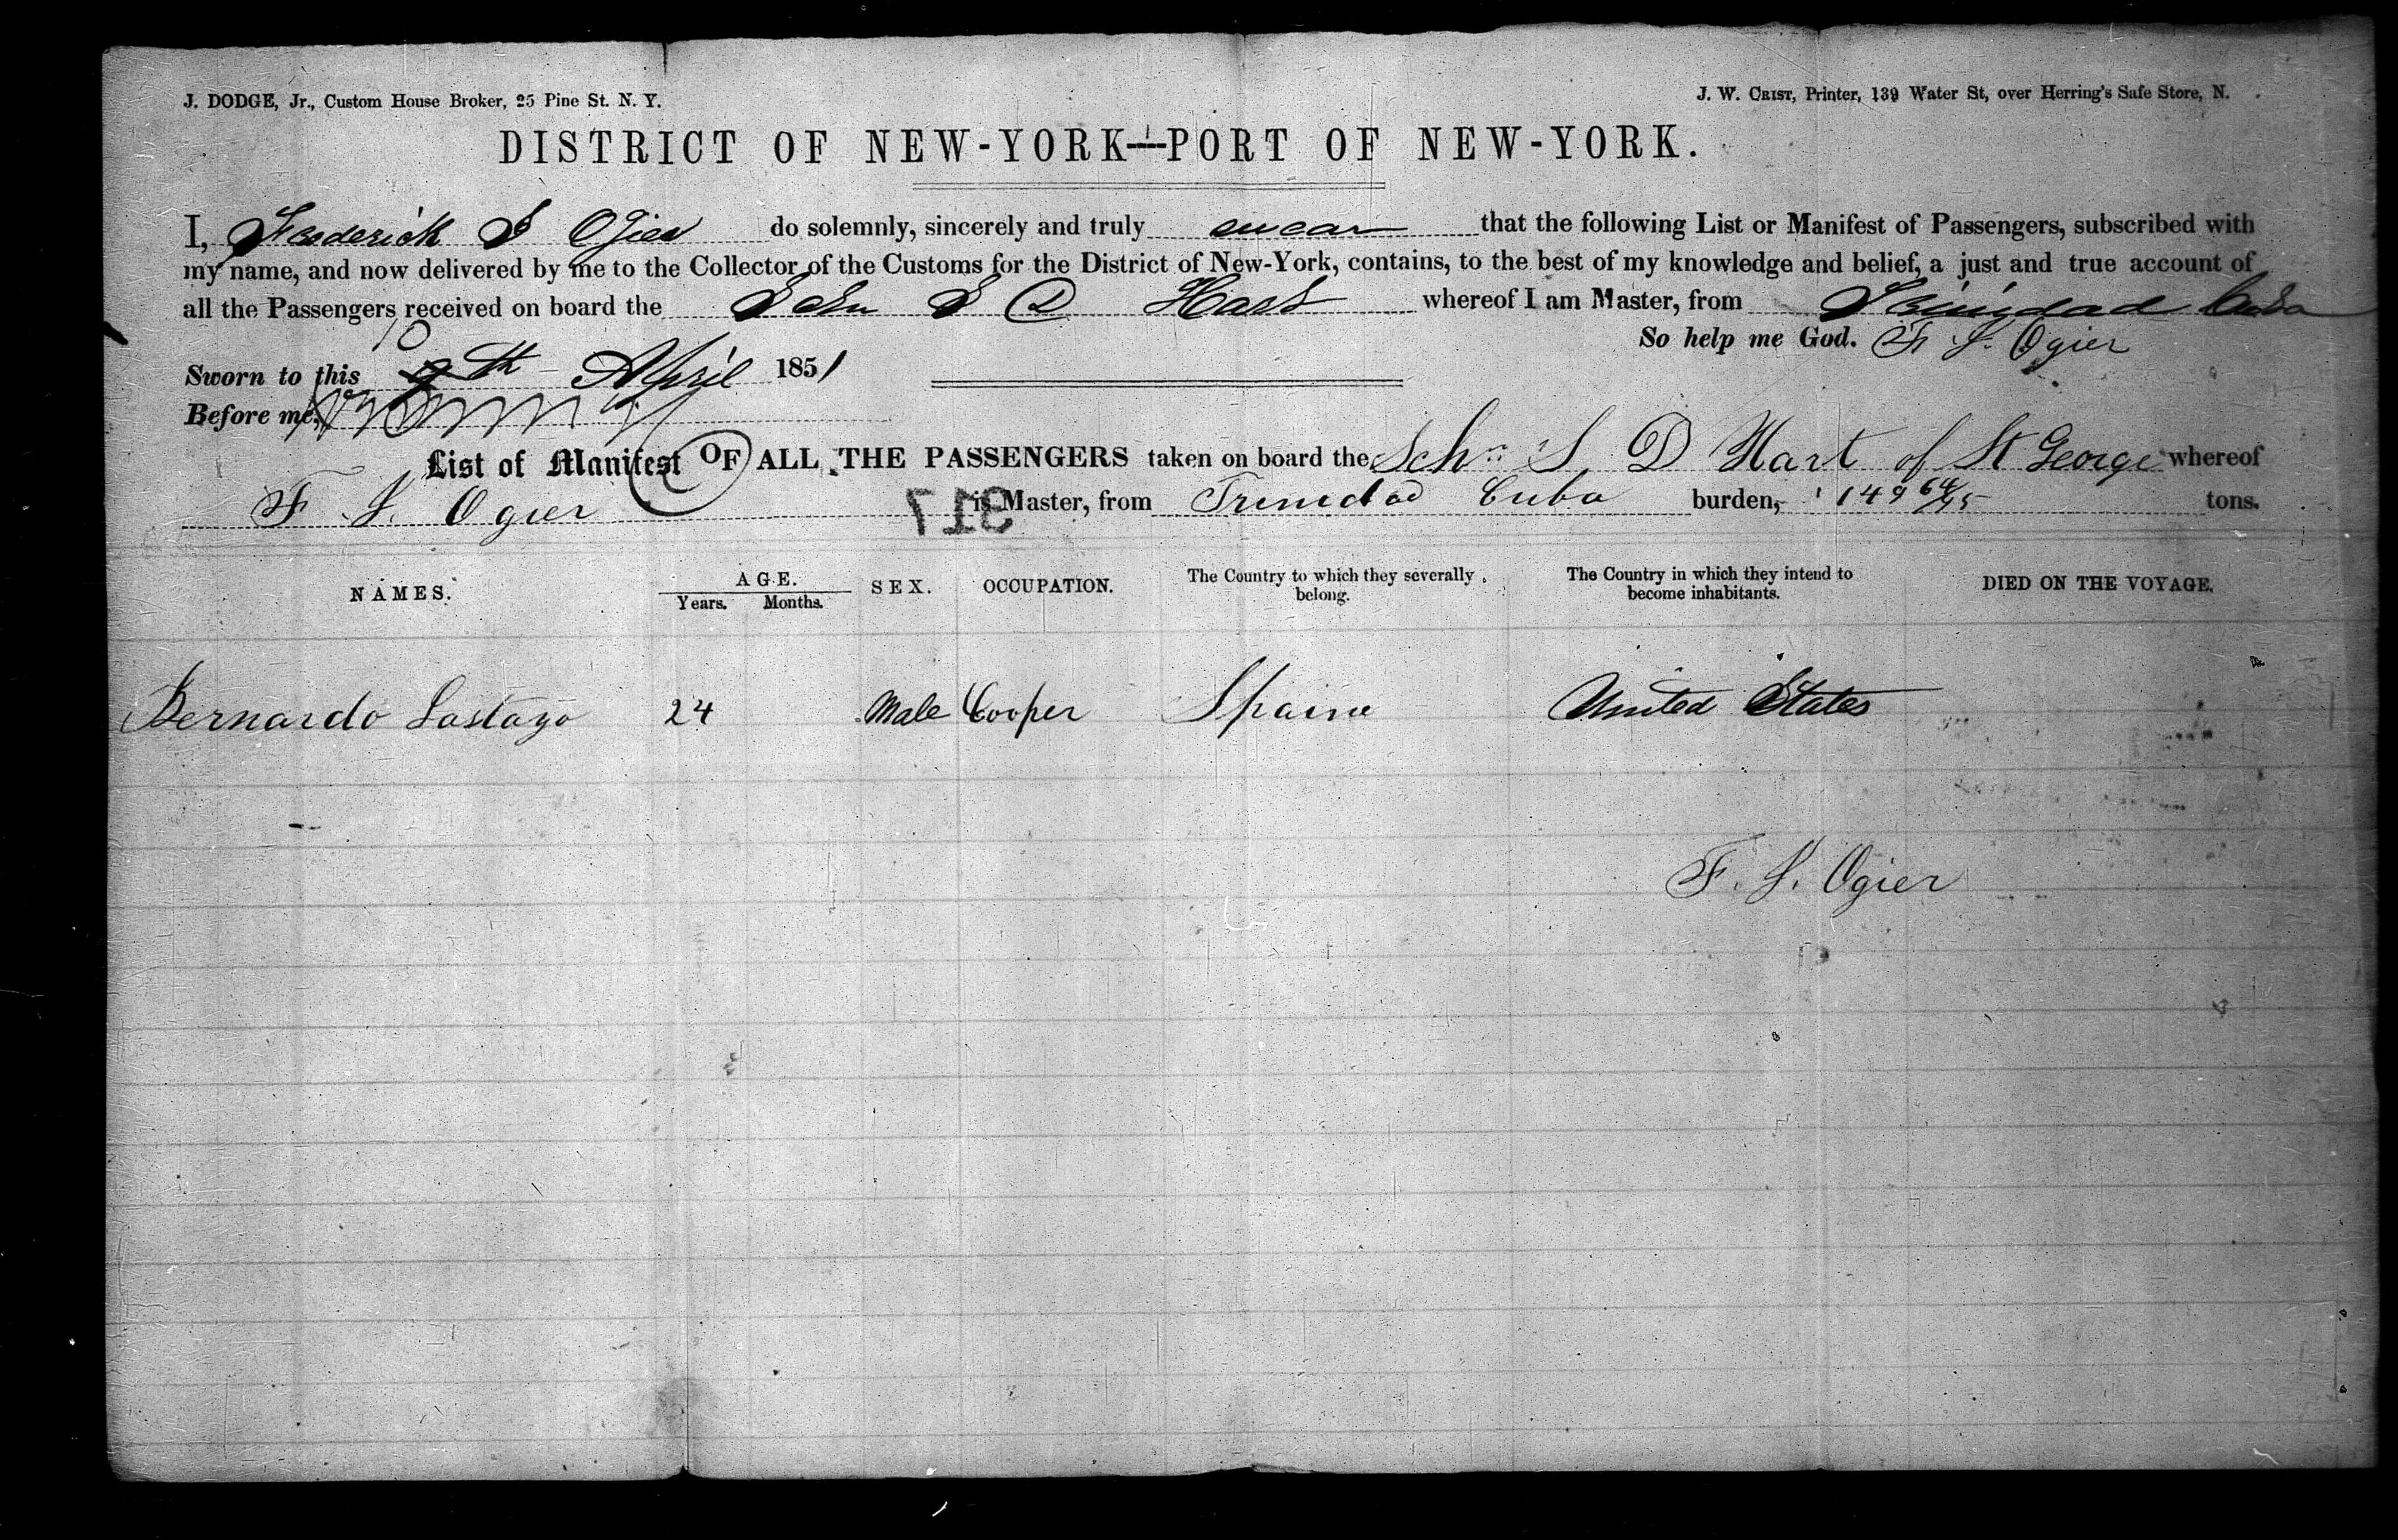 J. DODGE, Jr., Custom House Broker, 25 Pine St. N. Y.
J. W. CRIST, Printer, 139 Water St, over Herring's Safe Store, N.
DISTRICT OF NEW-YORK—PORT OF NEW-YORK.
I, Frederick S Ogier do solemnly, sincerely and truly swear that the following List or Manifest of Passengers, subscribed with
my name, and now delivered by me to the Collector of the Customs for the District of New-York, contains, to the best of my knowledge and belief, a just and true account of
all the Passengers received on board the Schr S D Hart whereof I am Master, from Trinidad Cuba
So help me God. F. S. Ogier
10
Sworn to this 9th April 1851
Before me,
List of Manifest OF ALL THE PASSENGERS taken on board the Schr S. D Hart of St George whereof
F. S. Ogier is Master, from Trinidad Cuba burden, 149 64/95 tons.
317
NAMES. AGE. SEX. OCCUPATION. The Country to which they severally belong. The Country in which they intend to become inhabitants. DIED ON THE VOYAGE.
Years. Months.
Bernardo Lastayo 24 Male Cooper Spain United States
F. S. Ogier